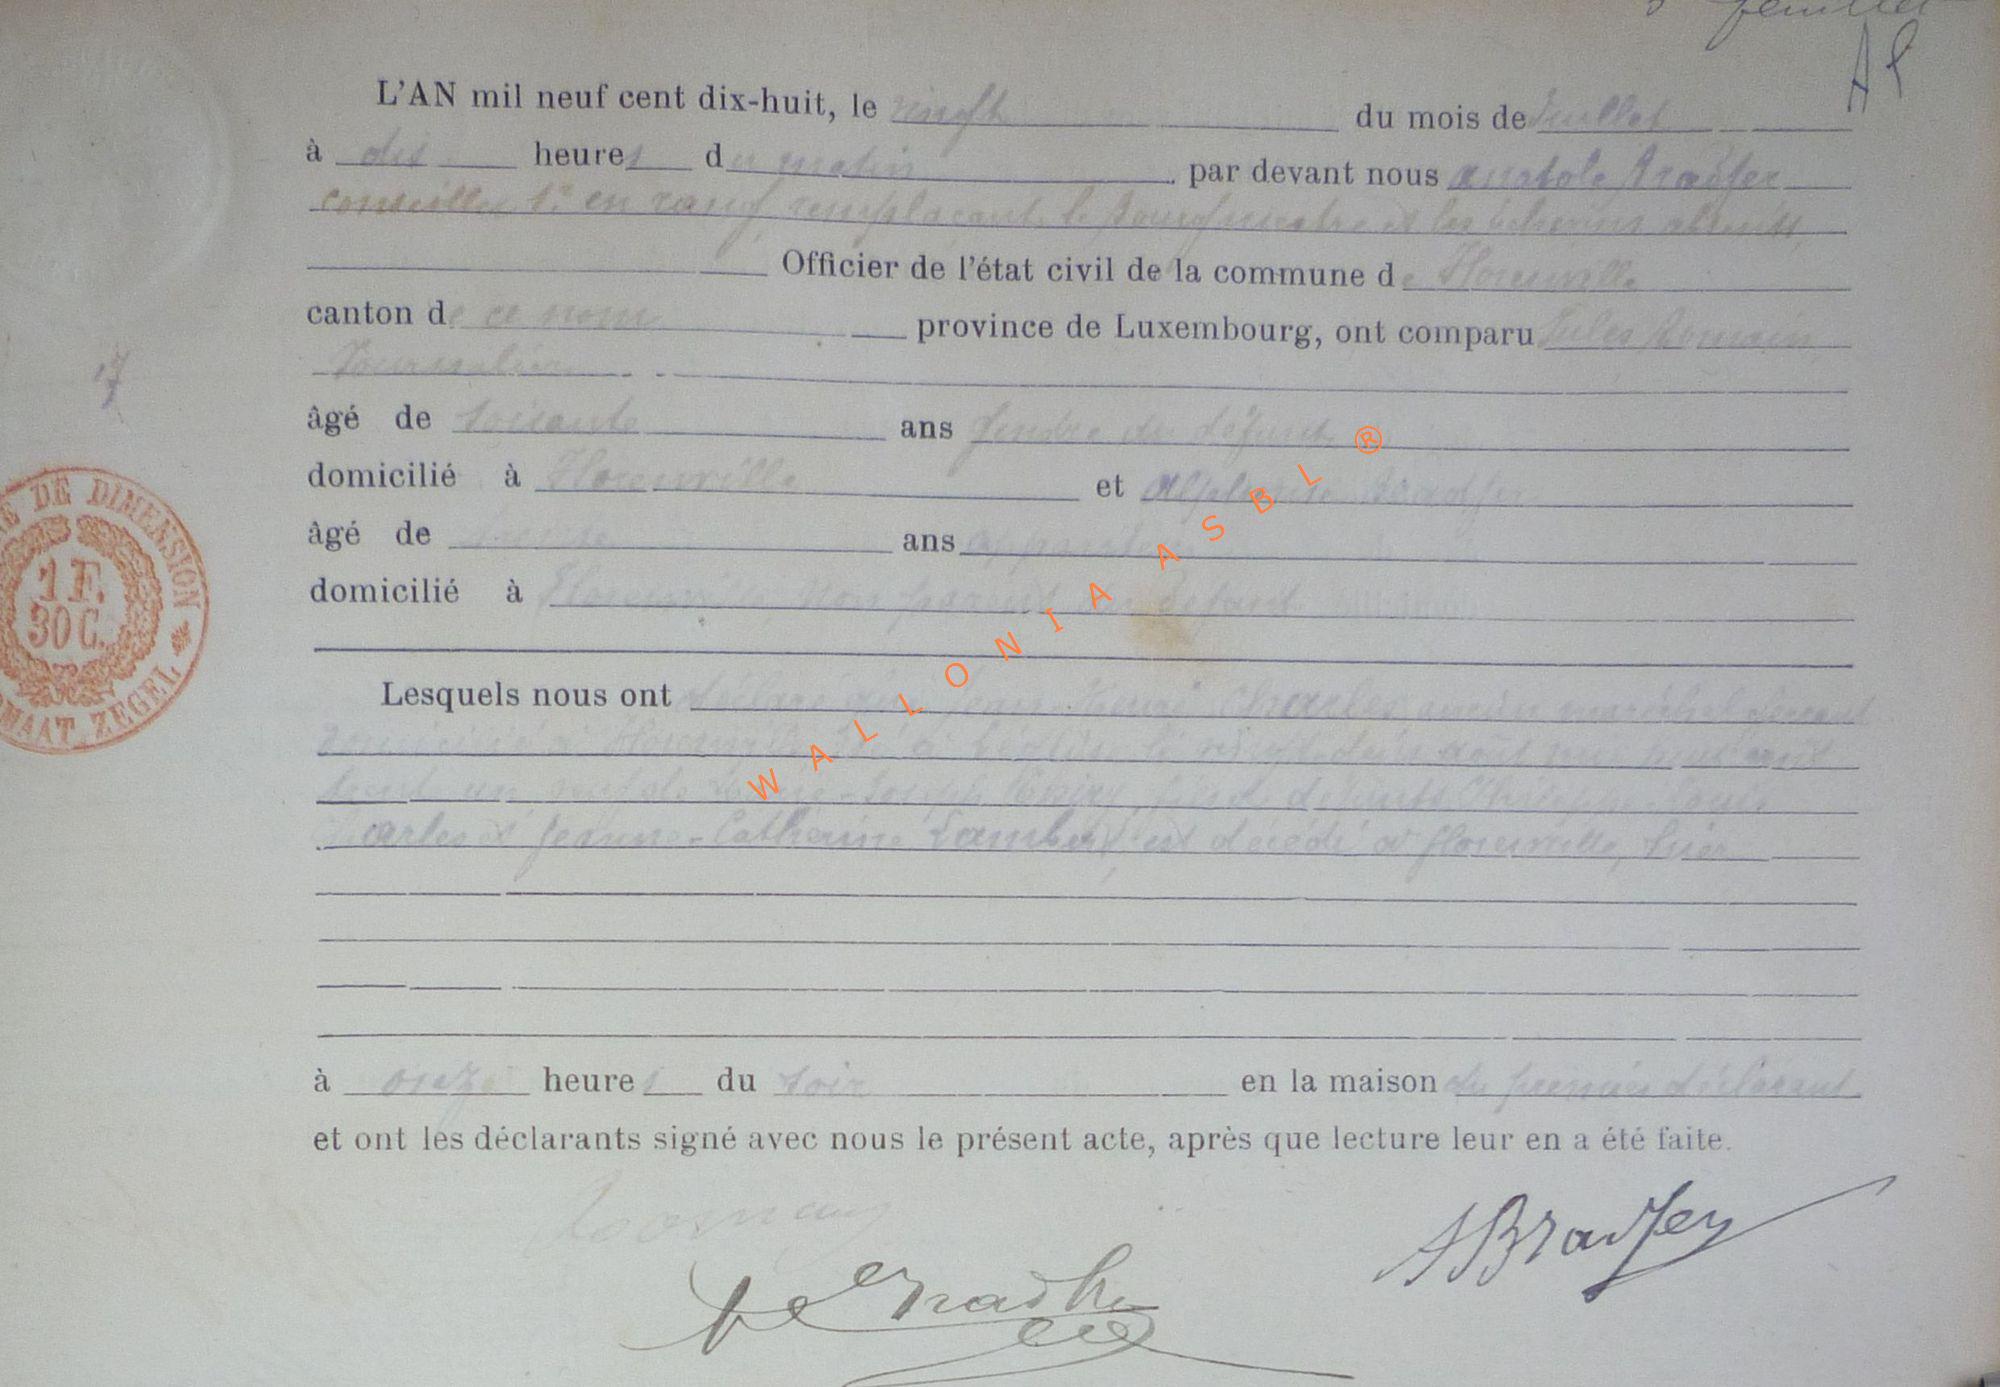 feuillet
L'AN mil neuf cent dix-huit, le vingt du mois de Juillet
à dix heures du matin par devant nous Anatole Bradfer
conseiller 1er en rang remplaçant le bourgmestre et les échevins absents
Officier de l'état civil de la commune de Florenville
canton de ce nom province de Luxembourg, ont comparu Jules Romain,
Journalier
âgé de soixante ans gendre du défunt
domicilié à Florenville et Alphonse Bradfer
âgé de ans
domicilié à Florenville, non parent du défunt
Lesquels nous ont déclaré que Jean Henri Charles, ancien maréchal ferrant
domicilié à Florenville, né à le vingt-deux août mil huit cent
trente un, veuf de fils de défunts Philippe Louis
Charles et Jeanne-Catherine Lambert, est décédé à Florenville, hier
à onze heures du soir en la maison du premier déclarant
et ont les déclarants signé avec nous le présent acte, après que lecture leur en a été faite.
ABradfer
17
DE DIMENSION
1 F.
30 C.
MAAT ZEGEL
WALLONIA ASBL ®